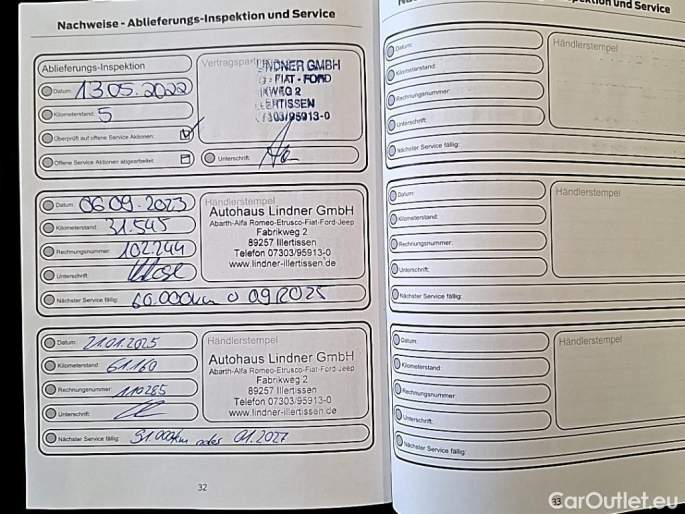 Nachweise - Ablieferungs-Inspektion und Service
Ablieferungs-Inspektion
Datum: 13.05.2022
Kilometerstand: 5
Überprüft auf offene Service Aktionen:
Offene Service Aktionen abgearbeitet:
LINDNER GMBH
FIAT - FORD
WEG 2
303/95913-0
Unterschrift:
Datum: 06.09.2023
Kilometerstand: 31.545
Rechnungsnummer: 102244
Unterschrift:
Händlerstempel
Autohaus Lindner GmbH
Abarth-Alfa Romeo-Etrusco-Fiat-Ford-Jeep
Fabrikweg 2
89257 Illertissen
Telefon 07303/95913-0
www.lindner-illertissen.de
Nächster Service fällig: 60.000km o 09/2025
Datum: 21.01.2025
Kilometerstand: 61.160
Rechnungsnummer: 110285
Unterschrift:
Händlerstempel
Autohaus Lindner GmbH
Abarth-Alfa Romeo-Etrusco-Fiat-Ford-Jeep
Fabrikweg 2
89257 Illertissen
Telefon 07303/95913-0
www.lindner-illertissen.de
Nächster Service fällig: 91.000km oder 01.2027
32
und Service
Datum:
Kilometerstand:
Rechnungsnummer:
Unterschrift:
Händlerstempel
Nächster Service fällig:
Datum:
Kilometerstand:
Rechnungsnummer:
Unterschrift:
Händlerstempel
Nächster Service fällig:
Datum:
Kilometerstand:
Rechnungsnummer:
Unterschrift:
Händlerstempel
Nächster Service fällig:
33
CarOutlet.eu